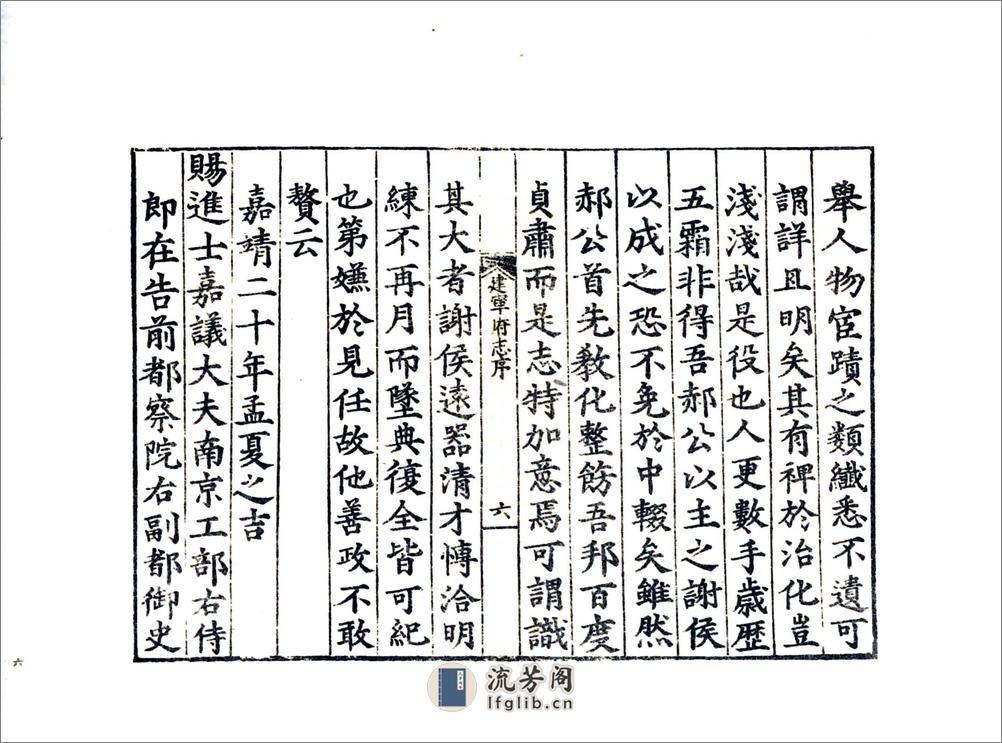 舉人物宦蹟之類纖悉不遺可
謂詳且明矣其有裨於治化豈
淺淺哉是役也人更數手歲歷
五霜非得吾郝公以主之謝侯
以成之恐不免於中輟矣雖然
郝公首先敎化整飭吾邦百度
貞肅而是志特加意焉可謂識
建寧府志序
六
其大者謝侯遠器清才愽洽明
練不再月而墜典復全皆可紀
也第嫌於見任故他善政不敢
贅云
嘉靖二十年孟夏之吉
賜進士嘉議大夫南京工部右侍
郎在告前都察院右副都御史
六
流芳阁
lfglib.cn